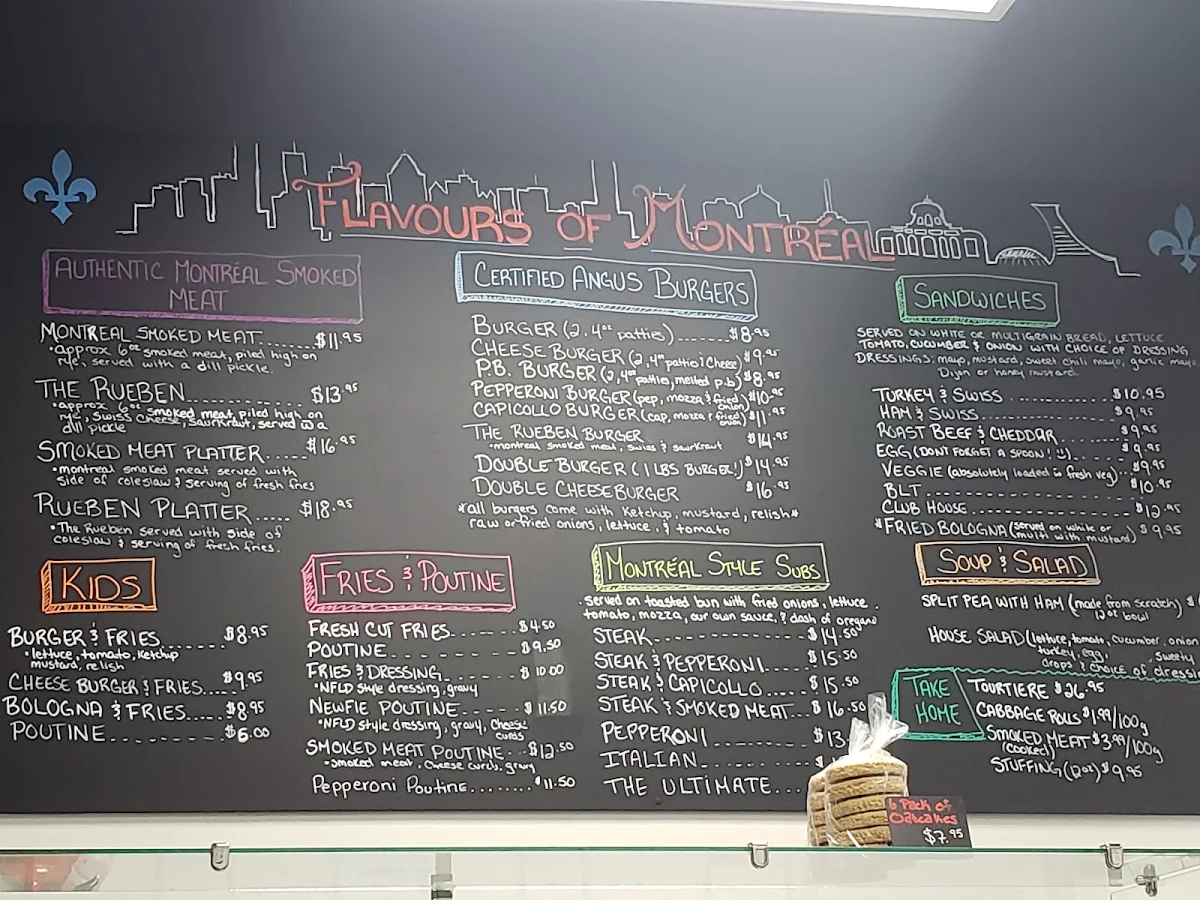 FLAVOURS OF MONTRÉAL
AUTHENTIC MONTRÉAL SMOKED
MEAT
MONTREAL SMOKED MEAT........$11.95
•approx 6oz smoked meat, piled high on
rye, served with a dill pickle.
THE RUEBEN................$13.95
•approx 6oz smoked meat, piled high on
rye, swiss cheese, saurkraut, served w a
dill pickle
SMOKED MEAT PLATTER.....$16.95
•montreal smoked meat served with
side of coleslaw & serving of fresh fries
RUEBEN PLATTER.....$18.95
•The Rueben served with side of
coleslaw & serving of fresh fries.
CERTIFIED ANGUS BURGERS
BURGER (2, 4oz patties)........$8.95
CHEESE BURGER (2, 4oz patti & Cheese) $9.95
P.B. BURGER (2, 4oz patties, melted p.b) $8.95
PEPPERONI BURGER (pep, mozza & fried onion) $10.95
CAPICOLLO BURGER (cap, mozza & fried onion) $11.95
THE RUEBEN BURGER $14.95
•montreal smoked meat, swiss & saurkraut
DOUBLE BURGER (1 LBS BURGER!) $14.95
DOUBLE CHEESEBURGER $16.95
*all burgers come with ketchup, mustard, relish*
raw or fried onions, lettuce, & tomato
SANDWICHES
SERVED ON WHITE or MULTIGRAIN BREAD, LETTUCE
TOMATO, CUCUMBER & ONION WITH CHOICE OF DRESSING
DRESSINGS: mayo, mustard, sweet chili mayo, garlic mayo,
Dijon or honey mustard.
TURKEY & SWISS ............$10.95
HAM & SWISS................$9.95
ROAST BEEF & CHEDDAR.......$9.95
EGG (DONT FORGET A SPOON! :)) ....$9.95
VEGGIE (absolutely loaded w fresh veg)..$9.95
BLT........................$10.95
CLUB HOUSE.................$12.95
*FRIED BOLOGNA (served on white or
multi with mustard) $9.95
KIDS
BURGER & FRIES.......$8.95
•lettuce, tomato, ketchup
mustard, relish
CHEESE BURGER & FRIES.....$9.95
BOLOGNA & FRIES.....$8.95
POUTINE............$6.00
FRIES & POUTINE
FRESH CUT FRIES........$4.50
POUTINE................$9.50
FRIES & DRESSING.......$10.00
•NFLD style dressing, gravy
NEWFIE POUTINE.........$11.50
•NFLD style dressing, gravy, cheese
curds
SMOKED MEAT POUTINE...$12.50
-smoked meat, cheese curds, gravy
Pepperoni Poutine........$11.50
MONTRÉAL STYLE SUBS
•served on toasted bun with fried onions, lettuce,
tomato, mozza, our own sauce, & dash of oregano
STEAK..................$14.50
STEAK & PEPPERONI......$15.50
STEAK & CAPICOLLO......$15.50
STEAK & SMOKED MEAT...$16.50
PEPPERONI..............$13
ITALIAN................$
THE ULTIMATE...
SOUP & SALAD
SPLIT PEA WITH HAM (made from scratch) $
12oz bowl
HOUSE SALAD (lettuce, tomato, cucumber, onion
turkey, egg, sweety
drops & choice of dressi
TAKE
HOME
TOURTIERE $26.95
CABBAGE ROLLS $1.99/100g
SMOKED MEAT $3.99/100g
(COOKED)
STUFFING (12oz) $9.95
6 Pack of
Oatcakes
$7.95